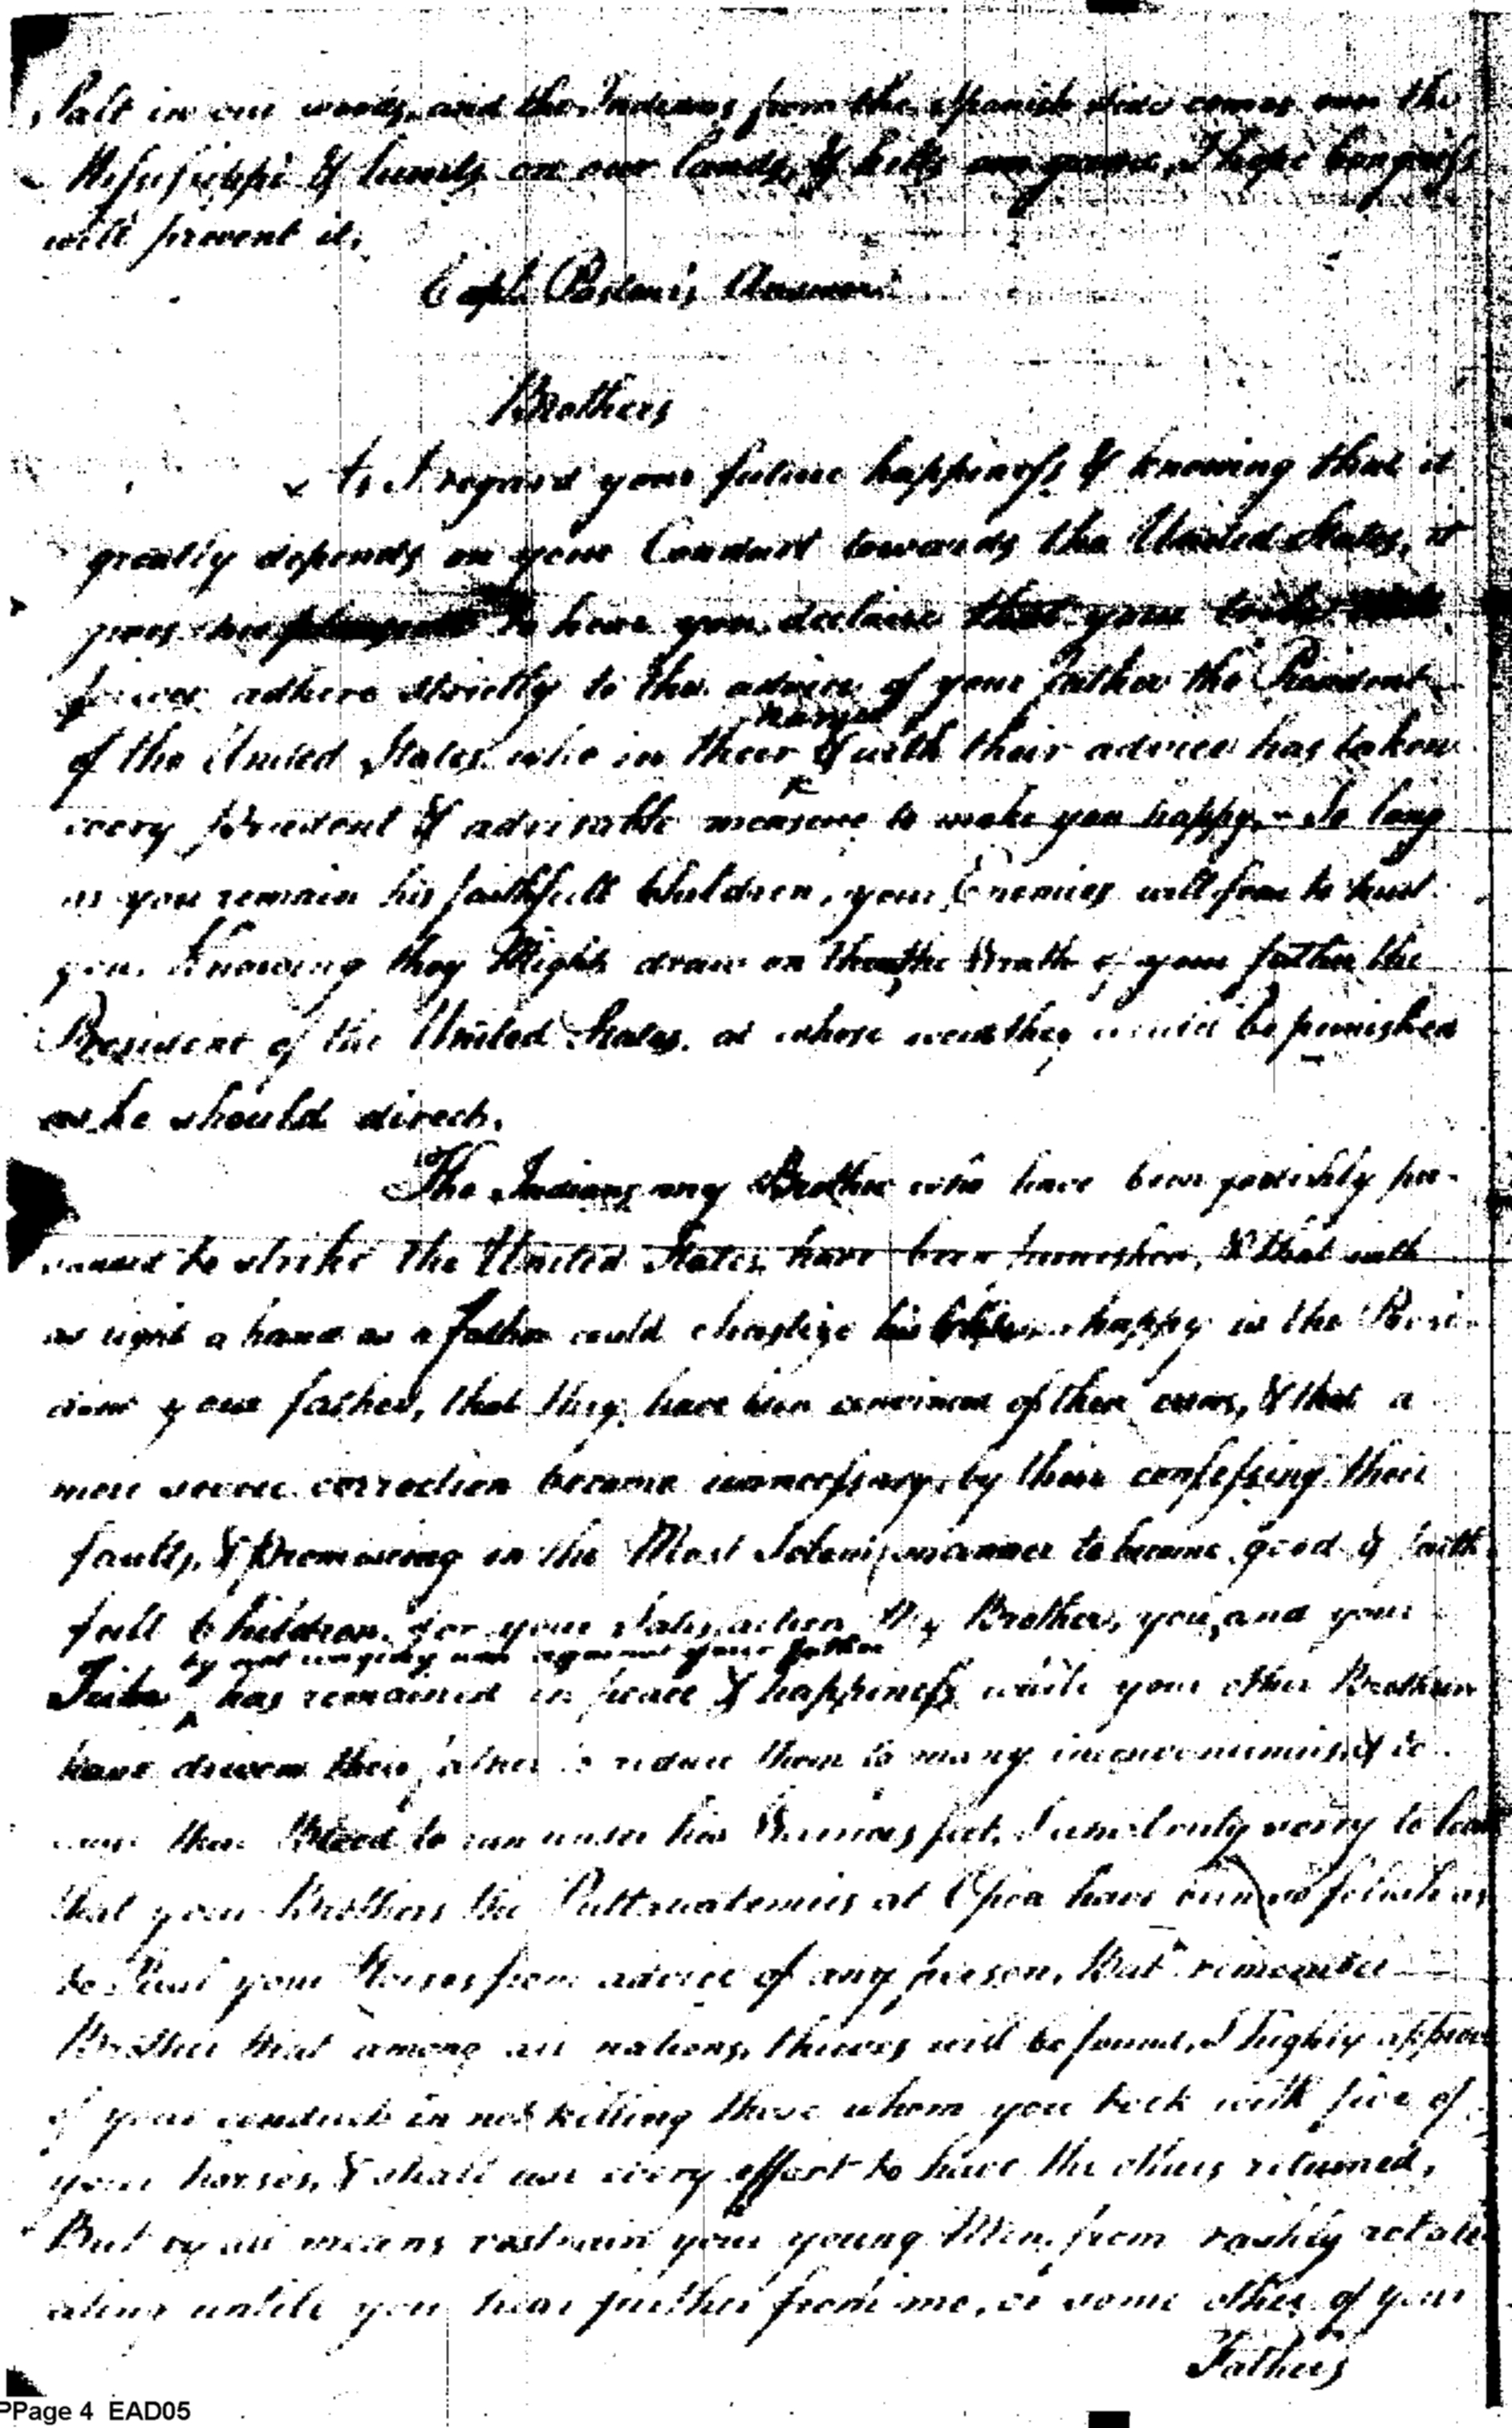 Salt in our woods, and the Indians from the Spanish side comes over the
Mississippi & hunts on our lands, & kills our game, I hope Congress
will prevent it.
Capt. Answer
Brothers
As I regard your future happiness & knowing that it
greatly depends on your Conduct towards the United States, it
gives me to hear you declare that you
adhere strictly to the advice of your father the President
of the United States who in their names & with their advice has taken
every prudent & advisable measure to make you happy. - So long
as you remain his faithfull Children, your Enemies will fear to hurt
you. Knowing they Might draw on them the Wrath of your father the
President of the United States, at whose word they would be punished
as he should direct.
The Indians my Brother who have been foolishly per-
suaded to strike the United States, have been punished, & that with
as light a hand as a father could chastize his happy is the Presi-
dent your father, that they have been convinced of their errors, & that a
more severe correction became unnecessary, by their confessing their
faults, & promising in the Most Solemn manner to become good & faith
full Children. For your Satisfaction My Brother, you, and your
by not waging war against your father
Tribe has remained in peace & happiness while your other Brothers
have driven their father to reduce them to many inconveniencies & to
cause their Blood to run under his Warriors feet. I am truly sorry to hear
that your Brothers the Puttawatemies at Opea have been so foolish as
to Steal your Horses from advice of any person, But remember
Brother that among all nations, thieves will be found, I highly approve
of your conduct in not killing those whom you took with five of
your horses, & shall use every effort to have the others returned,
But by all means restrain your young Men, from rashly retali
ating untill you hear further from me, or some other of your
Fathers
PPage 4 EAD05